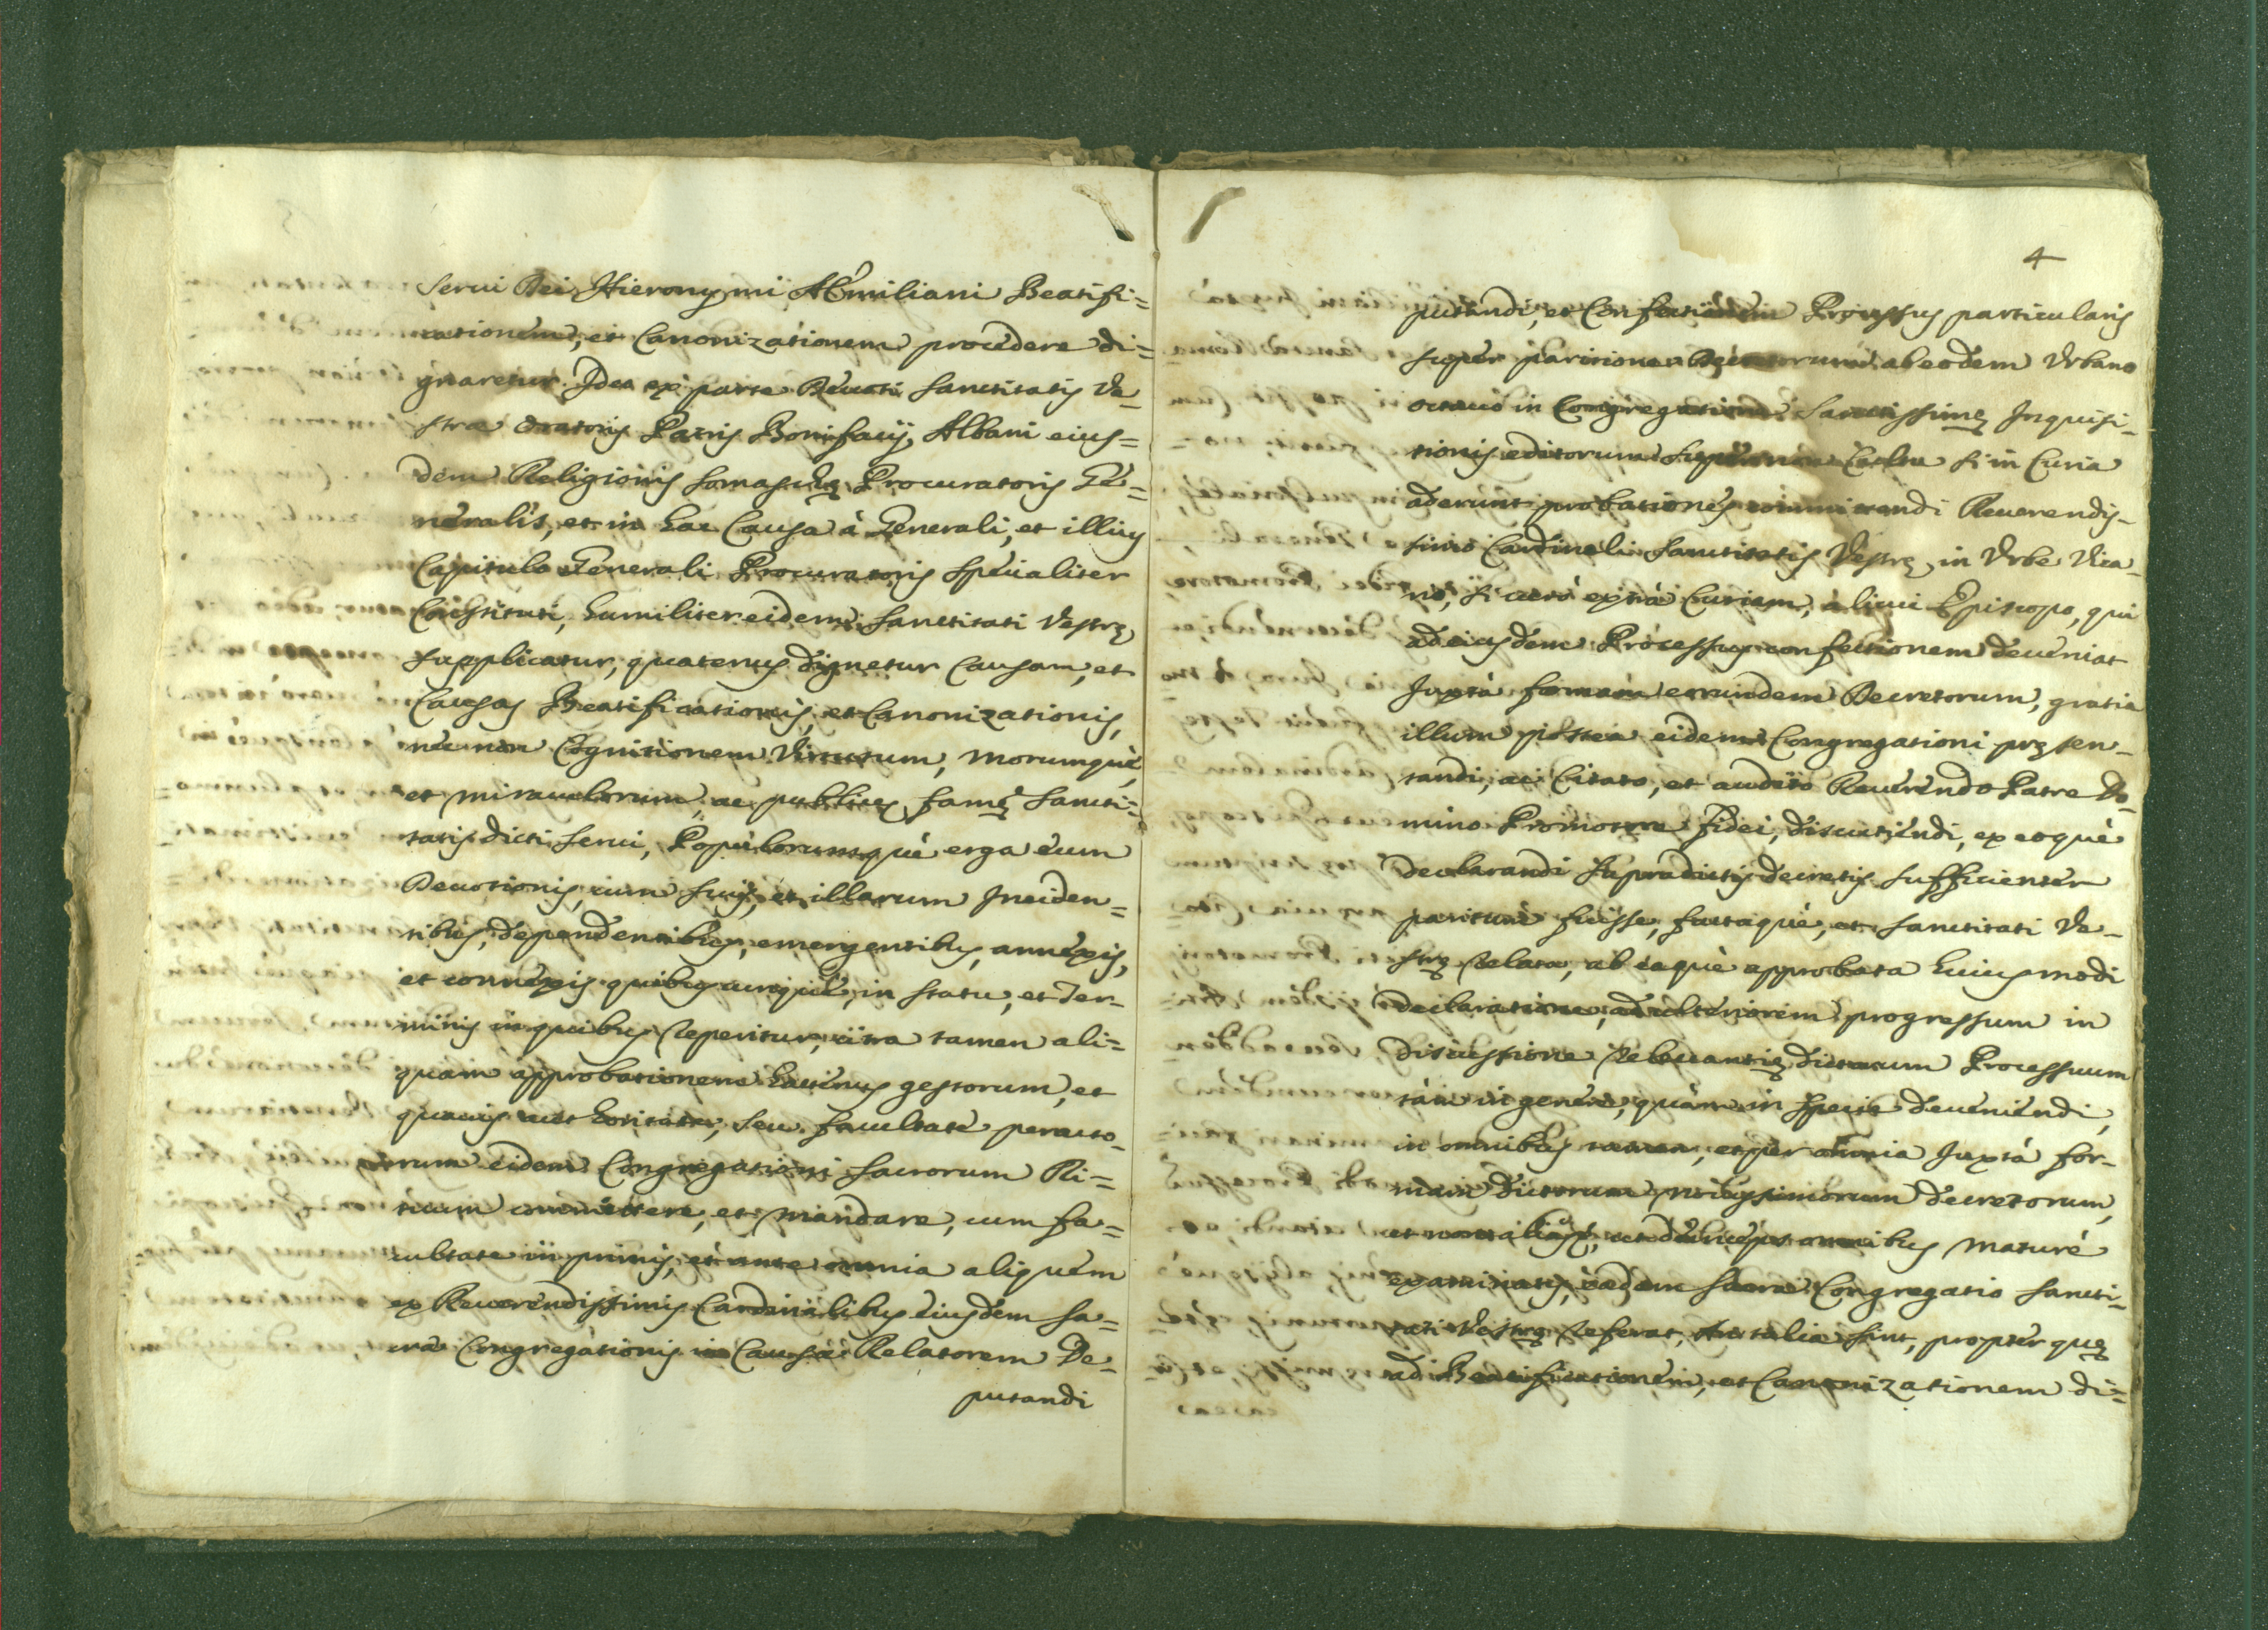 Serui Dei Hieronymi Æmiliani Beatifi=
cationem, et Canonizationem procedere di=
gnaretur. Ideo ex parte Deuoti Sanctitatis Ve-
stræ Oratoris Patris Bonifacij Albani eius=
dem Religionis Somaschę Procuratoris Ge=
neralis, et in hac Causa à Generali, et illius
Capitulo Generali Procuratoris specialiter
Constituti, humiliter eidem Sanctitati Vestrę
supplicatur, quatenus dignetur Causam, et
Causas Beatificationis, et Canonizationis,
nec non Cognitionem Virtutum, Morumquè,
et miraculorum, ac publicę famę Sancti=
tatis dicti Serui, Populorumquè erga eum
Deuotionis, cum suis, et illarum Inciden=
tibus, dependentibus, emergentibus, annexis,
et connexis quibuscunquè, in statu, et Ter-
minis in quibus reperitur, citra tamen ali=
quam approbationem hactenus gestorum, et
quauis aut horitate, seu facultate peracto-
rum eidem Congregationi Sacrorum Ri=
tuum committere, et mandare, cum fa=
cultate in primis, et ante omnia aliquem
ex Reuerendissimis Cardinalibus eiusdem Sa=
cræ Congregationis in Causa Relatorem De-
putandi
4
putandi, et Confectionem Processus particularis
super paritione Decretorum ab eodem Vrbano
octauo in Congregatione Sanctissimę Inquisi-
tionis editorum super non Cultu si in Curia
aderunt probationes committendi Reuerendis-
simo Cardinali Sanctitatis Vestrę in Vrbe Vica-
rio, si uerò extrà Curiam, alicui Episcopo, qui
ad eiusdem Processus confectionem deueniat
Iuxtà formam eorumdem Decretorum, gratia
illum postea eidem Congregationi pręsen-
tandi, ac Citato, et audito Reuerendo Patre Do-
mino Promotore fidei, discutiendi, ex eoquè
declarandi supradictis decretis sufficienter
paritum fuisse, factaquè, et Sanctitati Ve-
strę relata, ab eaquè approbata huiusmodi
declaratione, ad ulteriorem progressum in
discussione releuantię dictorum Processuum
tàm in genere, quàm in specie deueniendi,
in omnibus tamen, et per omnia Iuxtà for-
mam dictorum nouissimorum decretorum,
et non aliàs, ut deinceps omnibus maturè
examinatis, eadem Sacra Congregatio Sancti-
tati Vestrę referat, An talia sint, propter quę
ad Beatificationem, et Canonizationem di=